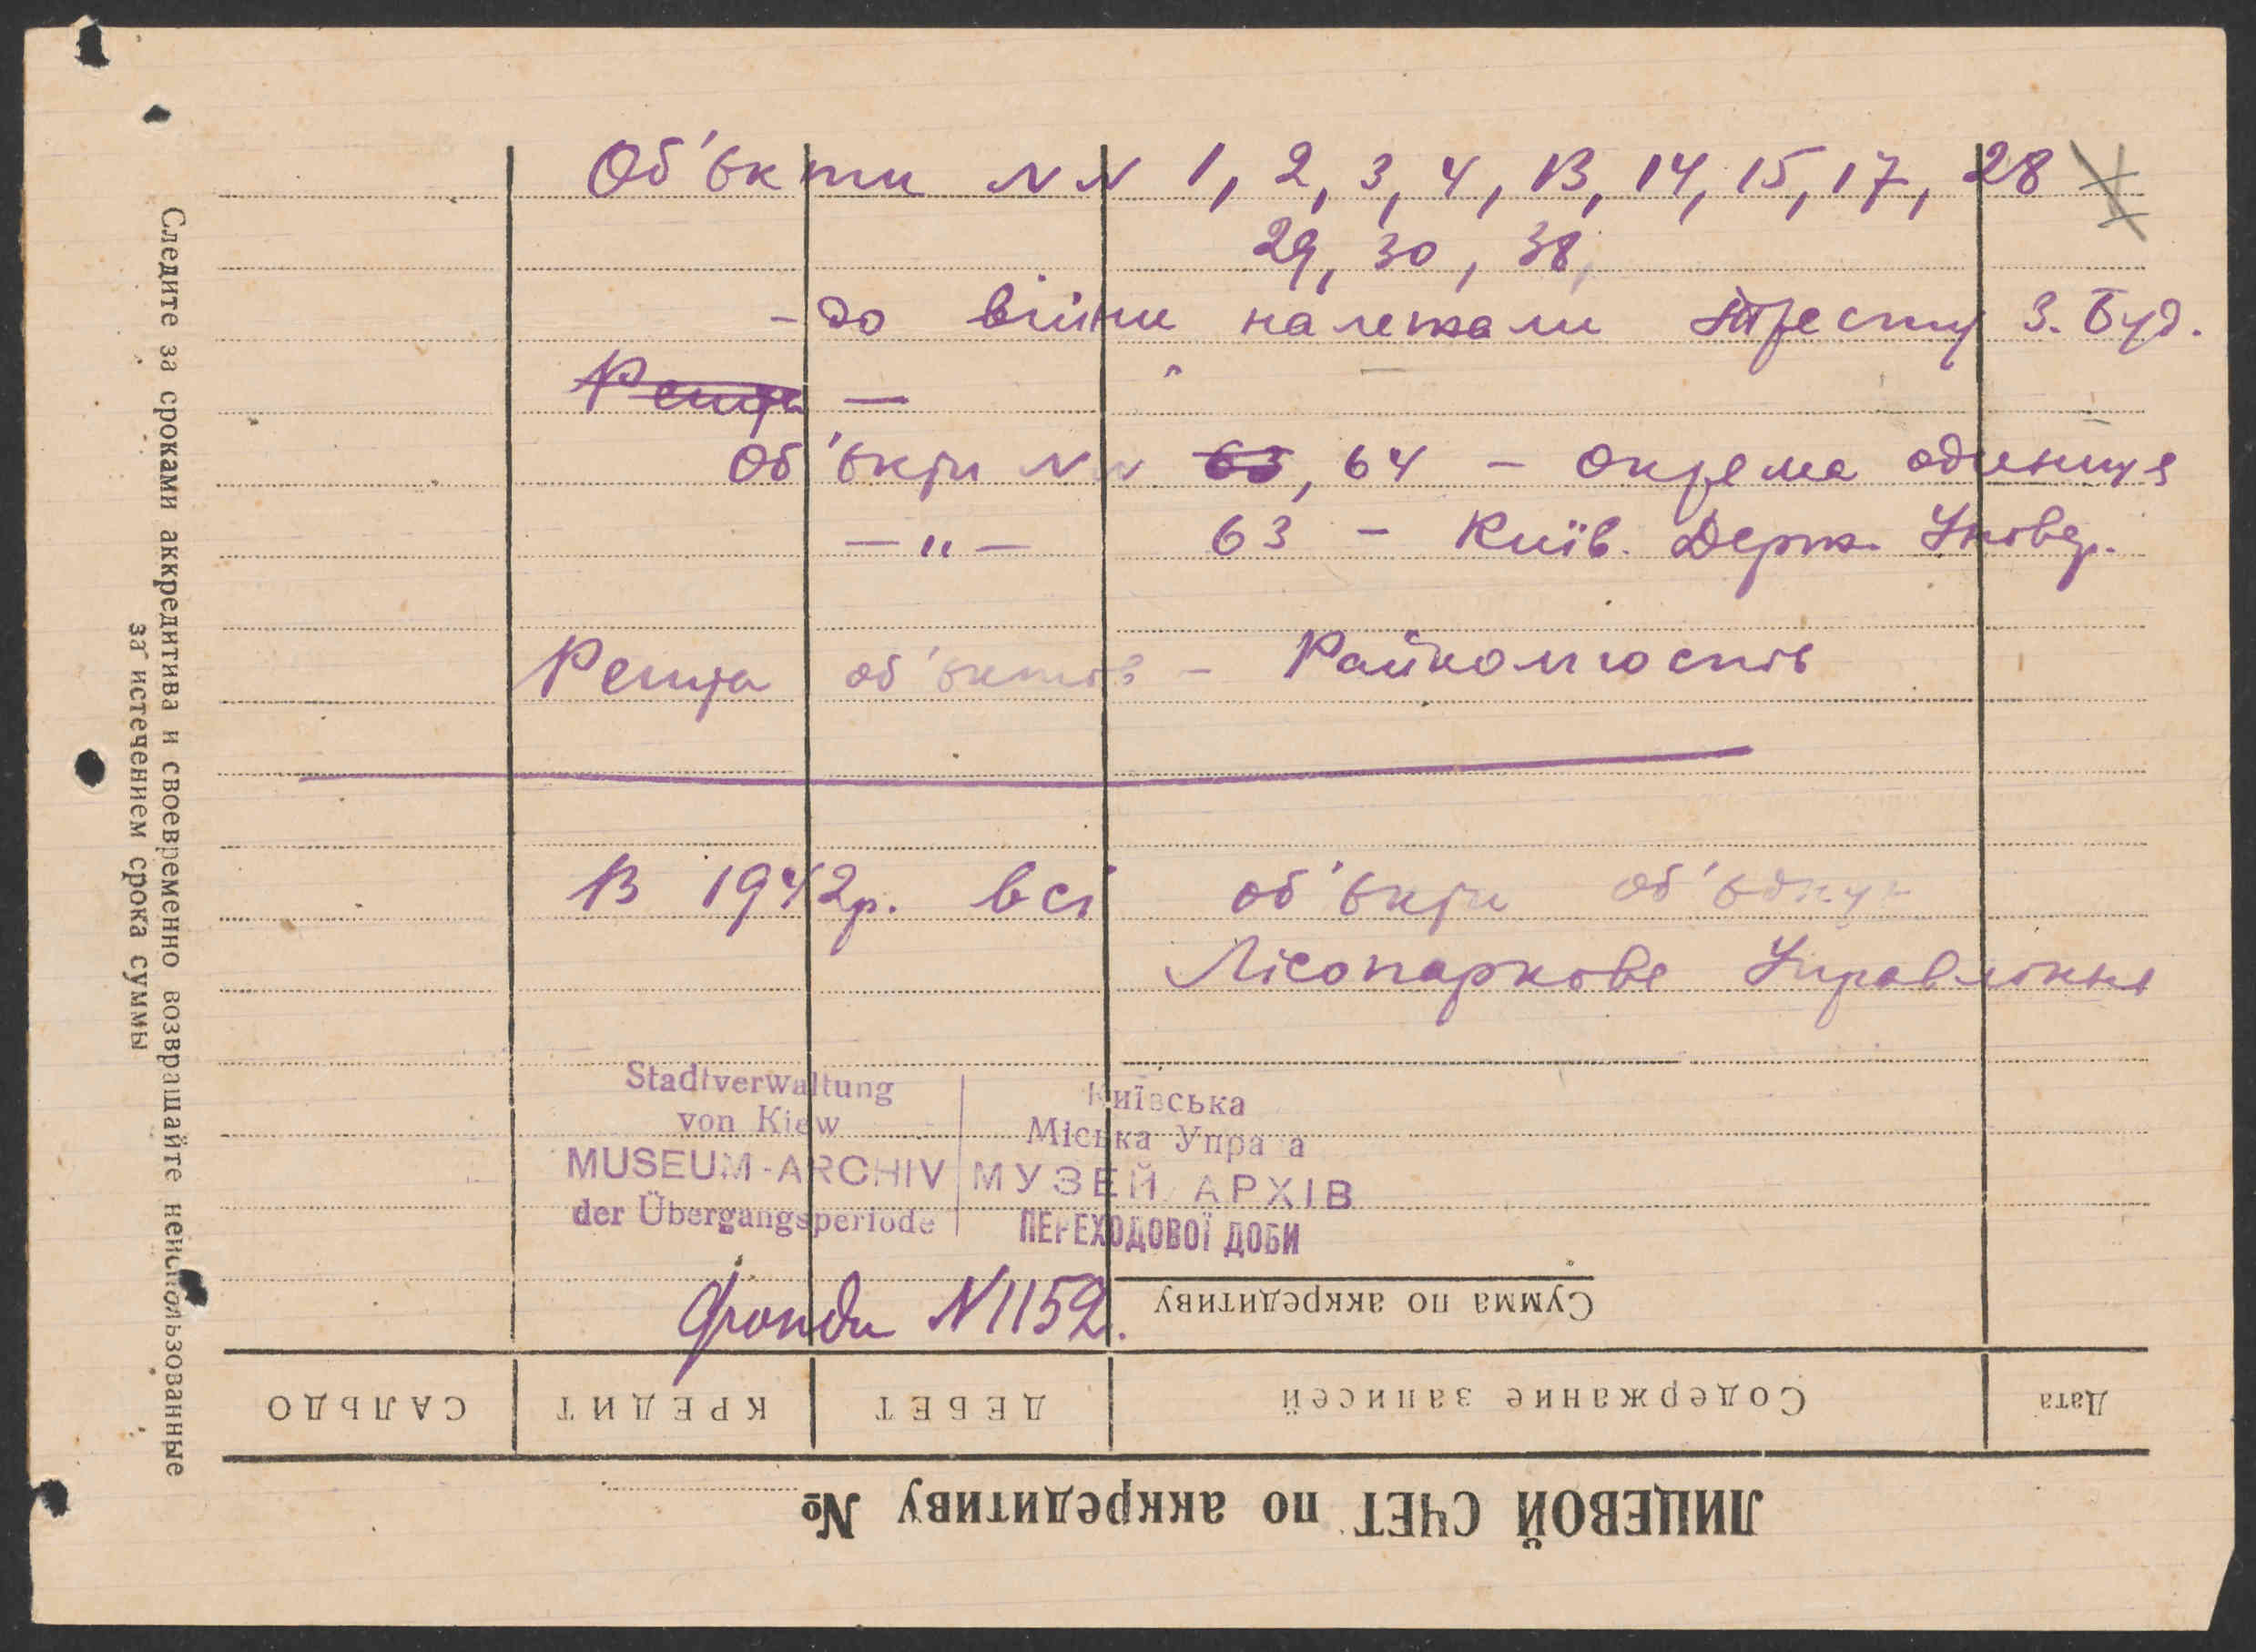 Об'єкти NN 1, 2, 3, 4, 13, 14, 15, 17, 28
29, 30, 38,
- до війни належали Тресту З. Буд.
Решта —
Об'єкти NN 63, 64 - окрема одиниця
— " — 63 - Київ. Держ. Універ.
Решта об'єктів - Райкомгоспів
В 1942 р. всі об'єкти
Лісопаркове Управління
Stadtverwaltung
von Kiew
MUSEUM-ARCHIV
der Übergangsperiode
Київська
Міська Управа
МУЗЕЙ АРХІВ
ПЕРЕХОДОВОЇ ДОБИ
Фонди N 1152.
Следите за сроками аккредитива и своевременно возвращайте неиспользованные
за истечением срока суммы
ЛИЦЕВОЙ СЧЕТ по аккредитиву №
Дата Содержание записей ДЕБЕТ КРЕДИТ САЛЬДО
Сумма по аккредитиву